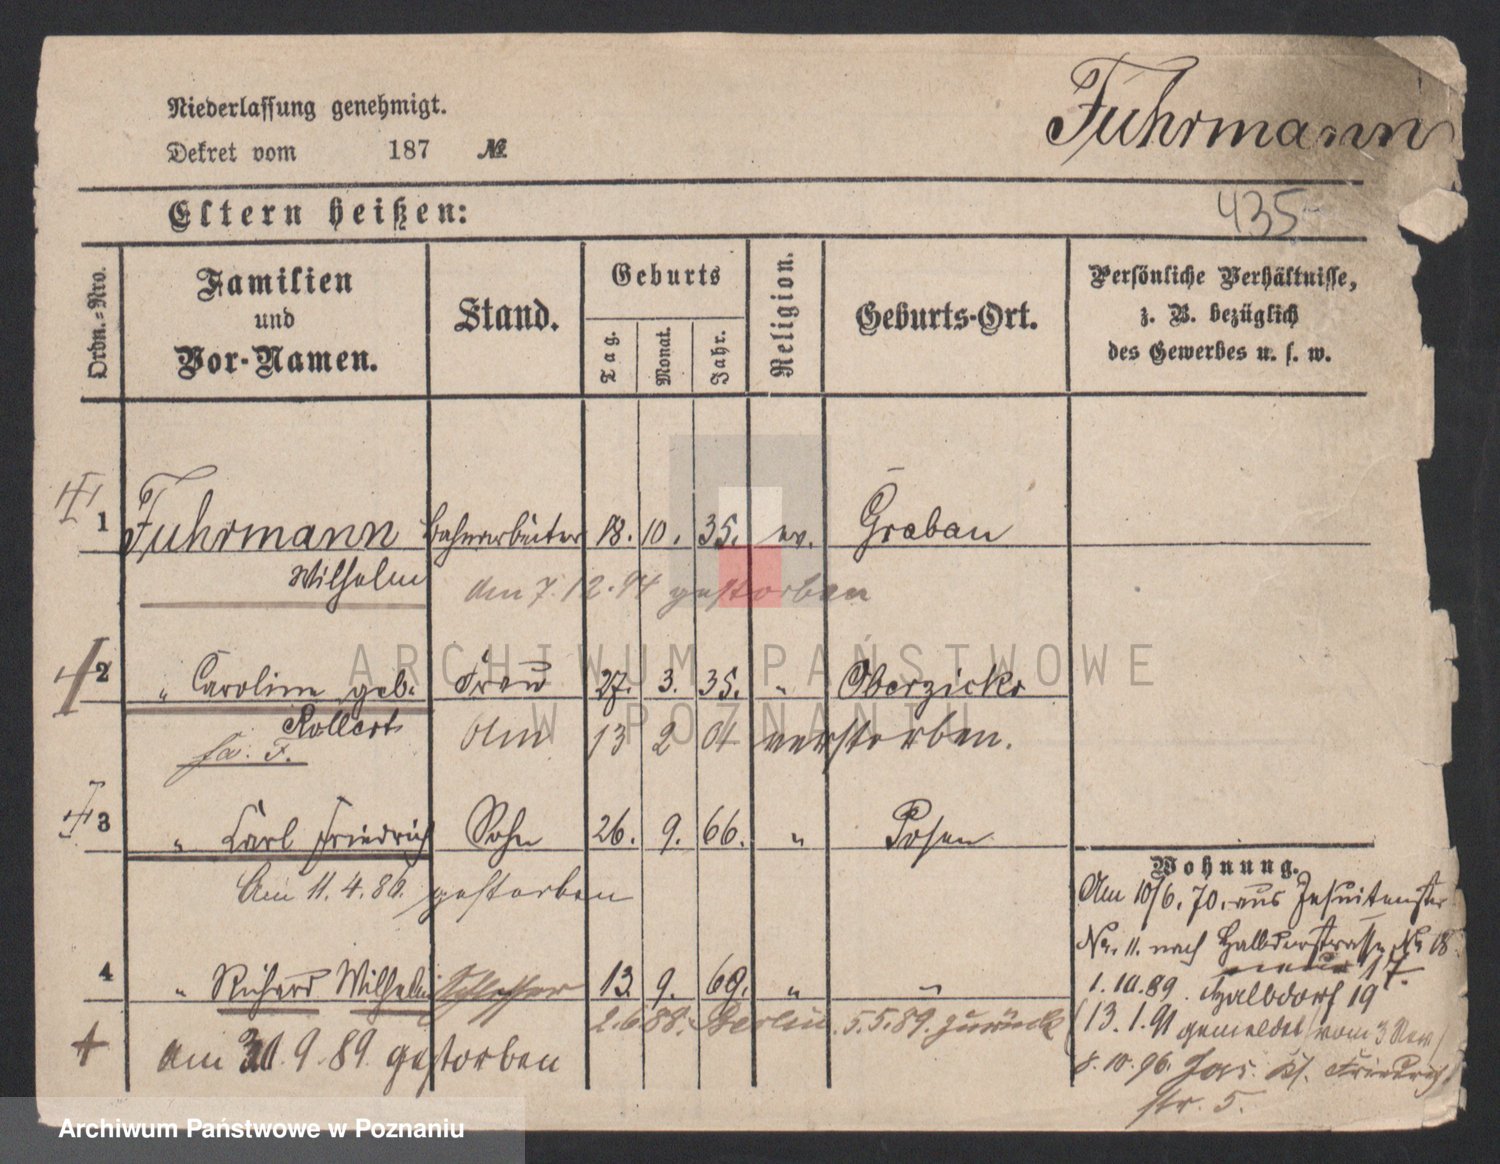 Niederlassung genehmigt.
Dekret vom 187 №
Fuhrmann
Eltern heißen:
435
Ordn.-Nro.
Familien
und
Vor-Namen.
Stand.
Geburts
Tag.
Monat.
Jahr.
Religion.
Geburts-Ort.
Persönliche Verhältnisse,
z. B. bezüglich
des Gewerbes u. s. w.
1 Fuhrmann Bahnarbeiter 18. 10. 35. ev. Grabau
Wilhelm
am 7.12.94 gestorben
ARCHIWUM PAŃSTWOWE
W POZNANIU
2 " Caroline geb. Frau 27. 3. 35. " Oberzicko
Rollert
Am 13 2 01 verstorben.
3 " Carl Friedrich Sohn 26. 9. 66. " Posen
Am 11.4.86. gestorben
4 " Richard Wilhelm Schlosser 13. 9. 69. " "
2.6.88. Berlin. 5.5.89. zurück
am 30.9.89. gestorben
Wohnung.
Am 10/6.70. aus Jesuitenstr
No. 11. nach Halbdorfstrasse No 18.
17
1.10.89. Halbdorf 19
13.1.91 gemeldet
8.10.96. Friedrich
str. 5.
Archiwum Państwowe w Poznaniu